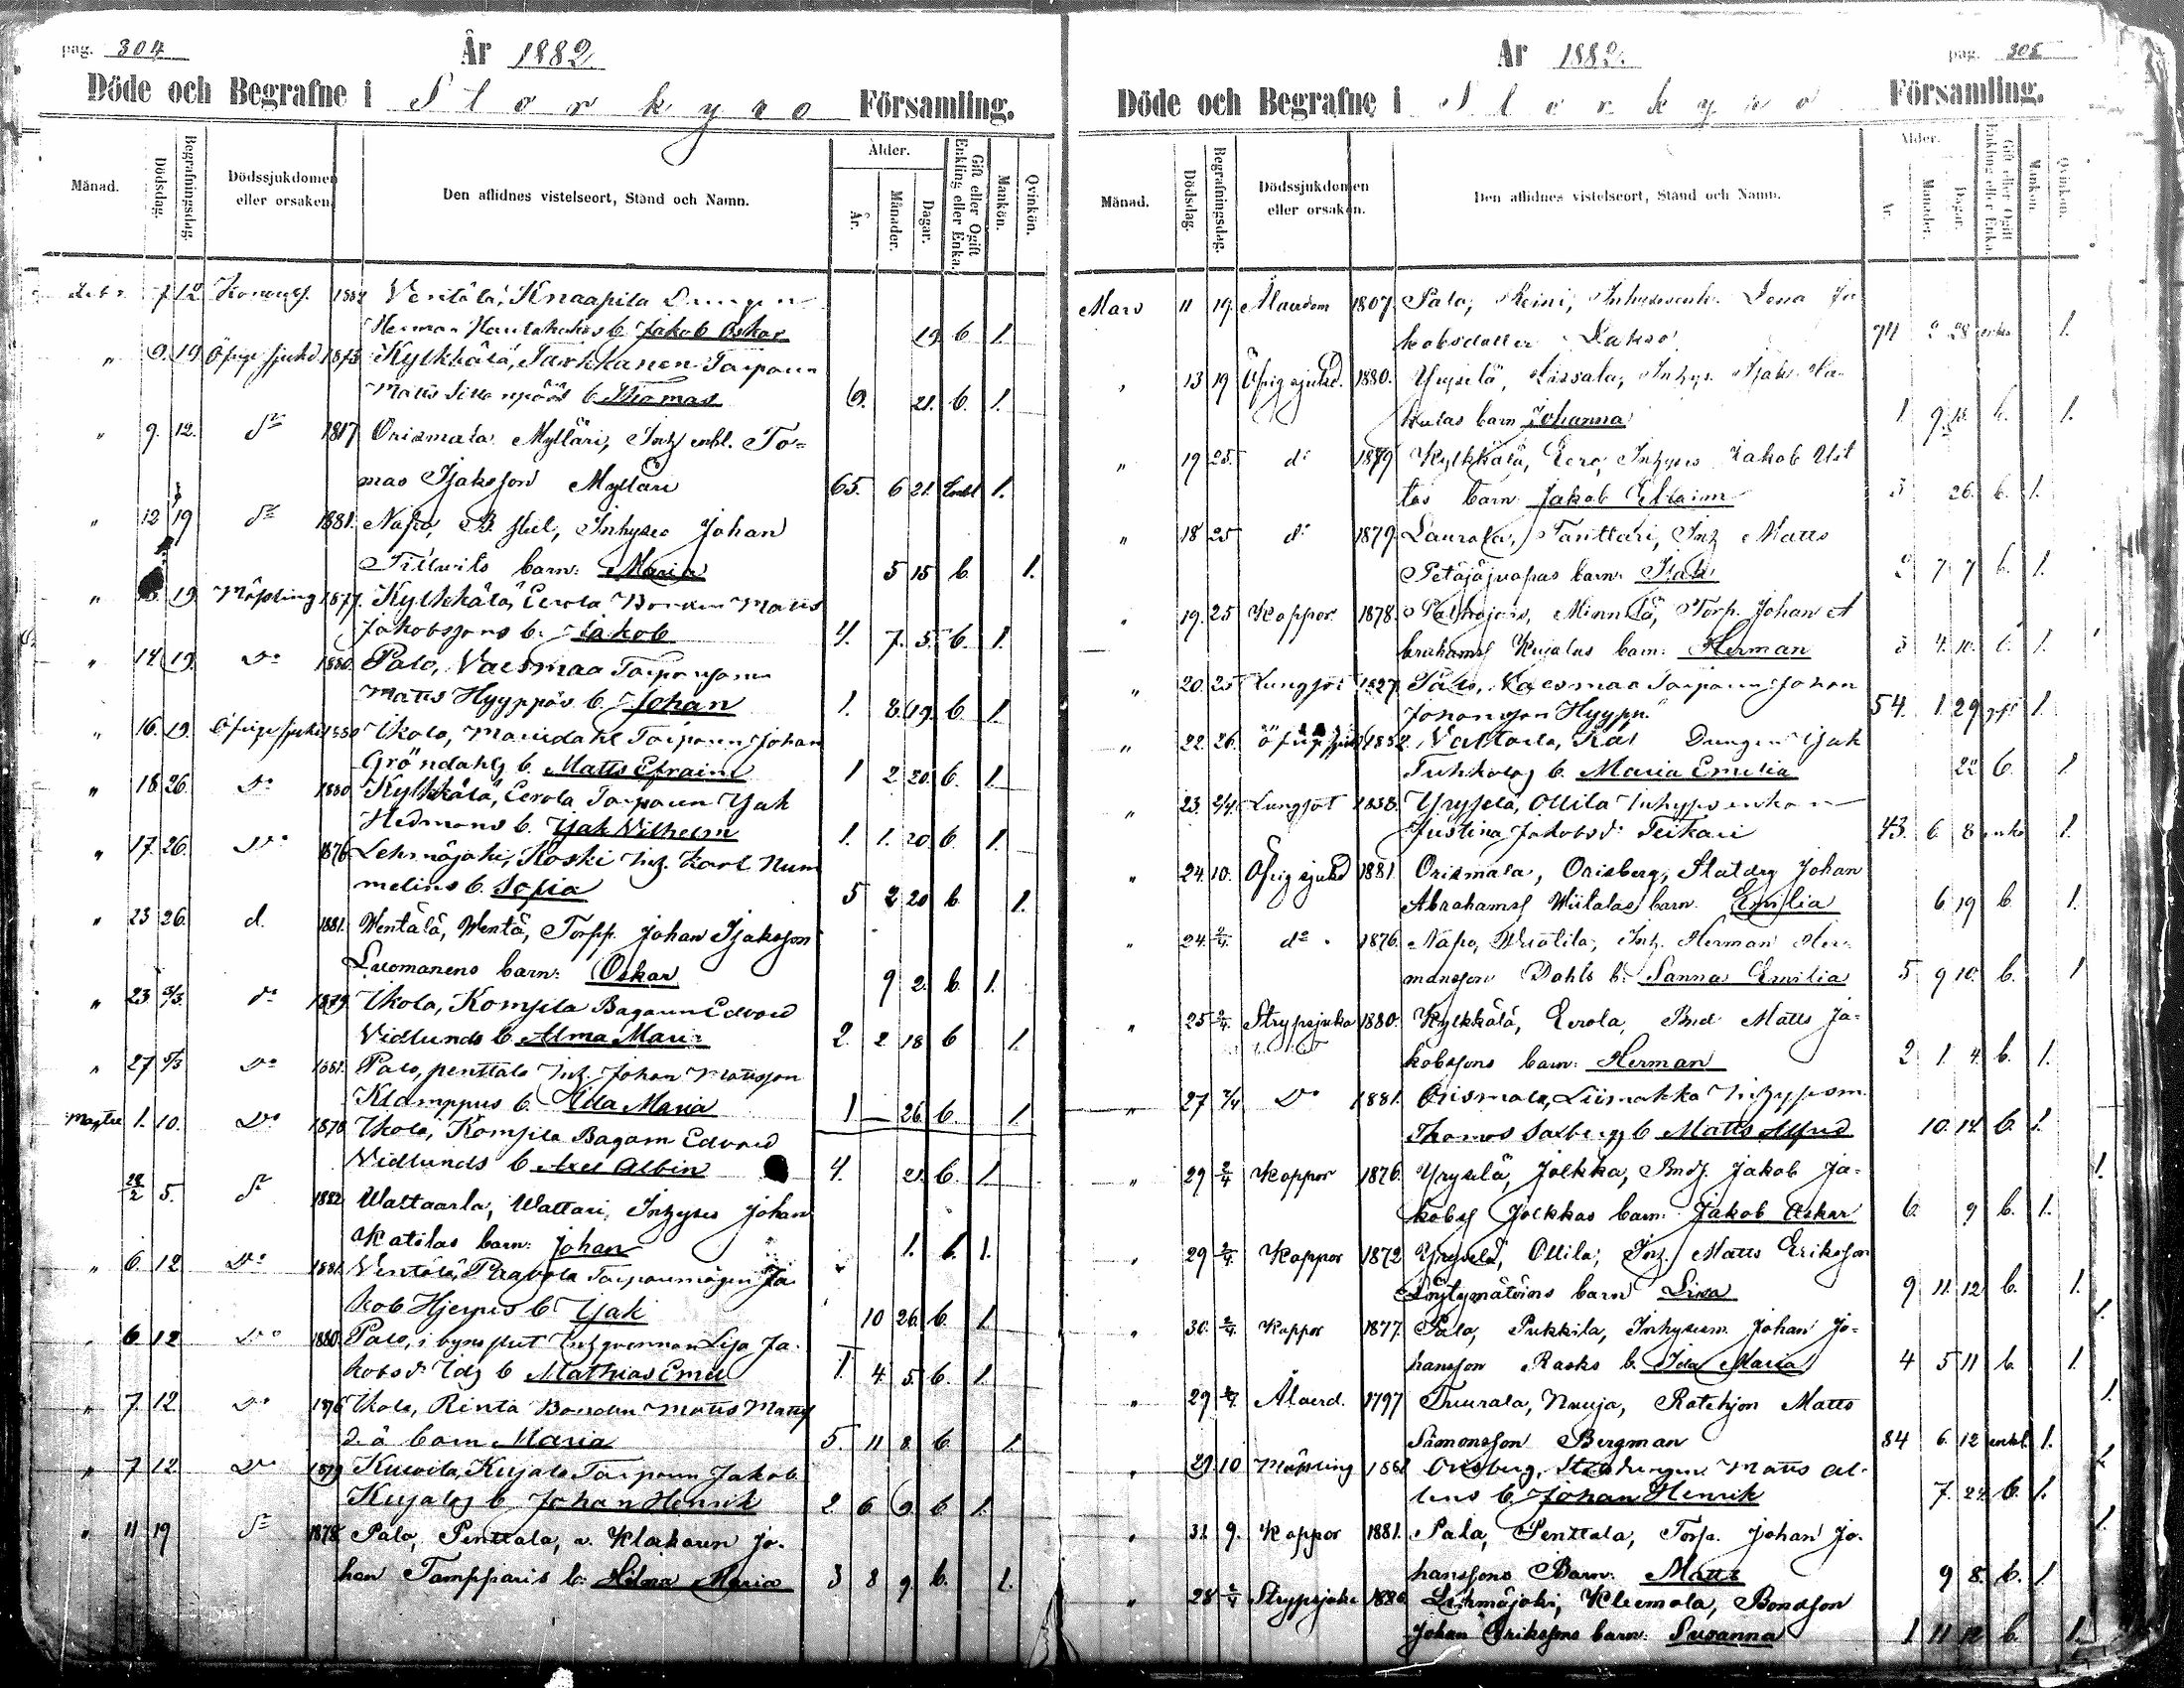 pag. 304
År 1882.
Döde och Begrafne i Storkyro Församling.
Månad.
Dödsdag.
Begrafningsdag.
Dödssjukdomen eller orsaken.
Den aflidnes vistelseort, Stånd och Namn.
Ålder.
År.
Månader.
Dagar.
Gift eller Ogift Enkling eller Enka.
Mankön.
Qvinkön.
7 12 1882 Ventälä, Knaapila Drengen
Herman b. Jakob Oskar 19 b 1.
" 9. 19 Öfrige sjukd 1875 Kylkkälä, Tarkkanen Torparen
Matts b Thomas 6. 21. b. 1.
" 9. 12. d:o 1817 Orismala Mylläri, Inh enkl. To=
mas Isaksson Mylläri 65. 6 21. Enkl 1.
" 12 19 d:o 1881. Napo, B. Inhyses Johan
barn: Maria 5 15 b. 1.
" 19. Mässling 1877. Kylkkälä, Eerola Bonden Matts
Jakobssons b. Jakob 4. 7. 5. b. 1.
" 14 19. D:o 1880 Palo, Vaismaa Torparsonen
Matts Hyyppäs b. Johan 1. 8. 19. b. 1.
" 16. 19. Öfrige sjukd 1880 Ikola, Torparen Johan
Gröndahls b. Matts Efraim 1 2 20. b. 1.
" 18. 26. D:o 1880 Kylkkälä, Eerola Torparen Isak
Hedmans b. Isak Vilhelm 1. 1. 20 b. 1.
" 17. 26. D:o 1876 Lehmäjoki, Koski Inh. Karl Num
melins b. Sofia 5 2 20 b. 1.
" 23 26. d. 1881. Wentälä, Wentä, Torpp. Johan Isaksson
Luomanens barn: Oskar 9 2. b. 1.
" 23 5/3. d:o 1879. Ikola, Komsila Bagaren Edvard
Vidlunds b Alma Maria 2. 2 18 b 1.
" 27 5/3 D:o 1881. Palo, penttala Inh. Johan Mattsson
Klamppus b. Ida Maria 1 — 26. b. 1.
1. 10. D:o 1878 Ikola, Komsila Bagarn Edvard
Vidlunds b Axel Albin 4. 2. b. 1.
28/2 5. d:o 1882 Wallaarla, Wallari, Inhyses Johan
Katilas barn: Johan 1. b. 1.
" 6. 12 D:o 1881. Ventälä, Torparemågen Ja
kob Hjerpes b Isak 10 26. b. 1.
" 6 12 D:o 1880. Palo, Inh qvinnan Lisa Ja
kobsd: b Mathias Emil 1. 4 5. b. 1.
" 7 12 D:o 1876 Ikola, Rinta Bonden Matts Matts
d. ä barn Maria 5. 11 8. b. 1.
" 7 12. D:o 1879 Kuivila, Kujala Torparen Jakob
Kujalas b. Johan Henrik 2. 6 9. b. 1.
" 11 19 d:o 1878. Palo, Penttala, Klockaren Jo-
han Tampparis b. Hilma Maria 3 8 9. b. 1.
År 1882.
pag. 305
Döde och Begrafne i Storkyro Församling.
Månad.
Dödsdag.
Begrafningsdag.
Dödssjukdomen eller orsaken.
Den aflidnes vistelseort, Stånd och Namn.
Ålder.
År.
Månader.
Dagar.
Gift eller Ogift Enkling eller Enka.
Mankön.
Qvinkön.
Mars 11 19. Ålderdom 1807. Palo, Lena Ja
kobsdotter 74 28 enka 1.
" 13 19 Öfrig sjukd. 1880. Yryselä, Inhys.
barn Johanna 1 9. 18. b. 1.
" 19 25. d:o 1879 Kylkkälä, Eero, Inhyses Jakob
barn. Jakob Efraim 3 26. b. 1.
" 18 25 d:o 1879. Laurola, Tanttari, Inh Matts
Petäjäjuopas barn. Isak 2 7 7 b. 1.
" 19. 25 Koppor 1878. Minnilä, Torp. Johan A
brahams Kujalas barn: Herman 3 4. 10. b. 1.
" 20. 25 Lungsot 1827. Palo, Vaismaa Torparen Johan
Johansson Hyyppä 54. 1. 29 gift 1.
" 22. 26. Öfrige sjukd 1882. Drengen Isak
b. Maria Emilia 22 b. 1
" 23. 2/4 Lungsot 1838. Yryselä, Ollila Inhyses enkan
Justina Jakobsd: Teikari 43. 6 8 enka 1.
" 24. 10. Öfrig sjukd 1881. Orismala, Orisberg, Statdrg Johan
Abrahams Wiitalas barn. Emilia 6 19 b 1.
" 24 2/4. d:o 1876. Napo, Inh. Herman Her-
mansson Dahls b. Sanna Emilia 5 9 10. b. 1
" 25 2/4. Strypsjuka 1880. Kylkkälä, Eerola, Bnd Matts Ja-
kobssons barn: Herman 2 1. 4. b. 1.
" 27 2/4 D:o 1881. Orismala, Liimakka Inhysesm.
Thomas Saxberg b Matts Alfred 10. 14. b. 1.
" 29 2/4 Koppor 1876. Yryselä, Jolkka, Bnds. Jakob Ja-
kobs Jolkkas barn: Jakob Oskar 6. 9 b. 1.
" 29 2/4. Koppor 1872 Yryselä, Ollila, Inh. Matts Eriksson
Löytymäkins barn Lisa 9 11. 12 b. 1.
" 30. 2/4. Koppor 1877. Palo, Pukkila, Inhysesm. Johan Jo-
hansson Rasks b. Ida Maria 4 5 11 b. 1.
" 29 2/4. Ålderd. 1797 Tuurala, Rotehjon Matts
Simonsson Bergman 84 6. 12 enkl. 1.
" 29 10 Mässling 1881 Orisberg, Matts
b. Johan Henrik 7. 24. b. 1.
" 31. 9. Koppor 1881. Palo, Penttala, Torp. Johan Jo-
hanssons Barn: Matts 9 8. b. 1.
" 28 2/4 Strypsjuka 1880. Lehmäjoki, Kleemola, Bondson
Johan Erikssons barn: Susanna 1 11 12 b. 1.